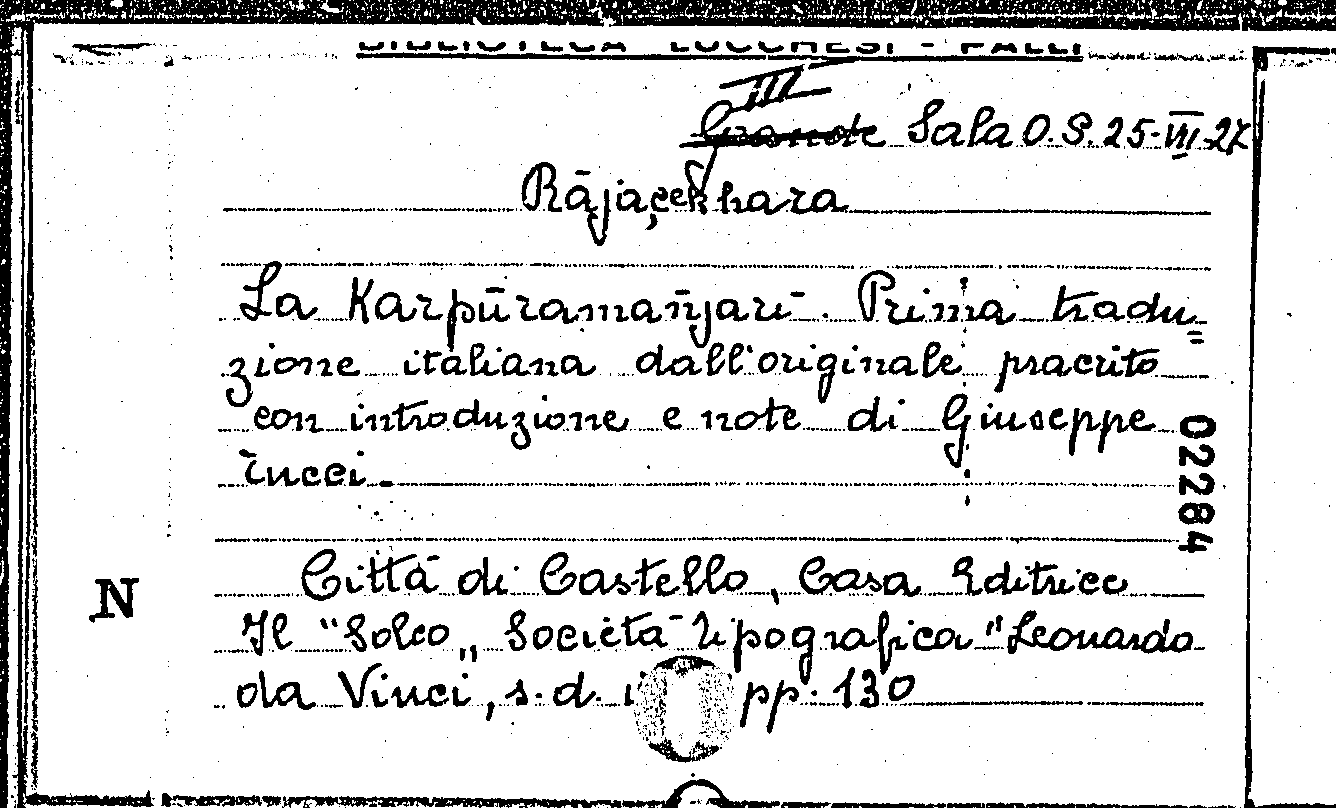 BIBLIOTECA LUCCHESI - PALLI
III
Grande Sala O.S. 25-VIII-27
Rājaçekhara
La Karpūramañjarī. Prima tradu=
zione italiana dall'originale pracrito
con introduzione e note di Giuseppe
Tucci.
02284
Città di Castello, Casa Editrice
N
Il "Solco„ Società Tipografica "Leonardo
da Vinci, s. d. pp. 130